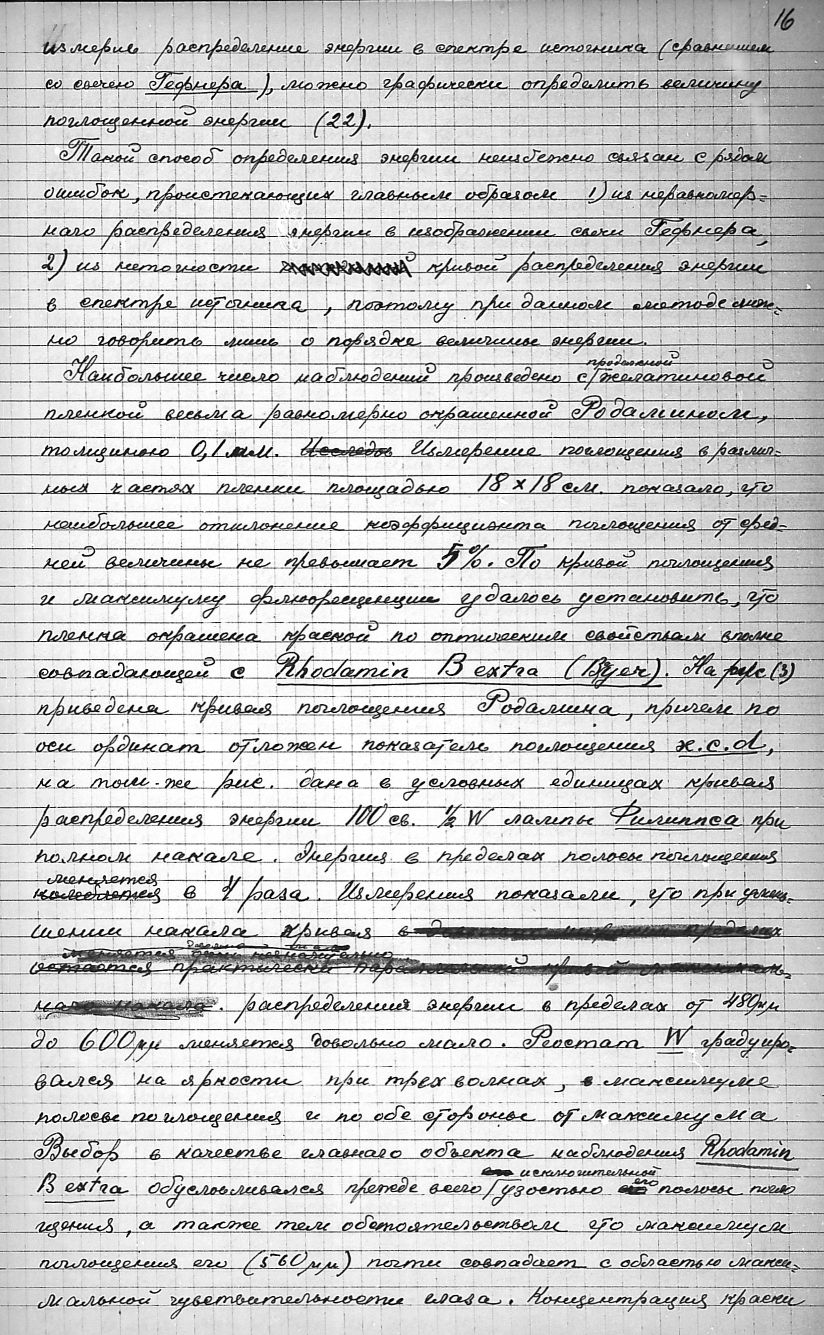 16
измерив распределение энергии в спектре источника (сравнением
со свечею Гефнера), можно графически определить величину
поглощенной энергии (22).
Такой способ определения энергии неизбежно связан с рядом
ошибок, проистекающих главным образом 1) из неравномер=
наго распределения энергии в изображении свечи Гефнера,
2) из неточности кривой распределения энергии
в спектре источника, поэтому при данном методе мож=
но говорить лишь о порядке величины энергии.
Наибольшее число наблюдений произведено с продажной желатиновой
пленкой весьма равномерно окрашенной Родамином,
толщиною 0,1 мм. Исследов Измерение поглощения в различ=
ных частях пленки площадью 18 × 18 см. показало, что
наибольшее отклонение коэффициэнта поглощения от сред=
ней величины не превышает 5%. По кривой поглощения
и максимуму флюоресценции удалось установить, что
пленка окрашена краской по оптическим свойствам вполне
совпадающей с Rhodamin B extra (Byer). На рис (3)
приведена кривая поглощения Родамина, причем по
оси ординат отложен показатель поглощения x.c.d,
на том-же рис. дана в условных единицах кривая
распределения энергии 100 св. ½ W лампы Филиппса при
полном накале. Энергия в пределах полосы поглощения
меняется
колеблется в 4 раза. Измерения показали, что при умень=
шении накала кривая в
меняется
остается практически параллельной кривой максималь=
наго накала. распределения энергии в пределах от 480 μμ
до 600 μμ меняется довольно мало. Реостат W градуиро=
вался на яркости при трех волнах, в максимуме
полосы поглощения и по обе стороны от максимума
Выбор в качестве главнаго объекта наблюдения Rhodamin
B extra обусловливался прежде всего исключительной узостью его полосы погло
щения, а также тем обстоятельством что максимум
поглощения его (560 μμ) почти совпадает с областью макси=
мальной чувствительности глаза. Концентрация краски